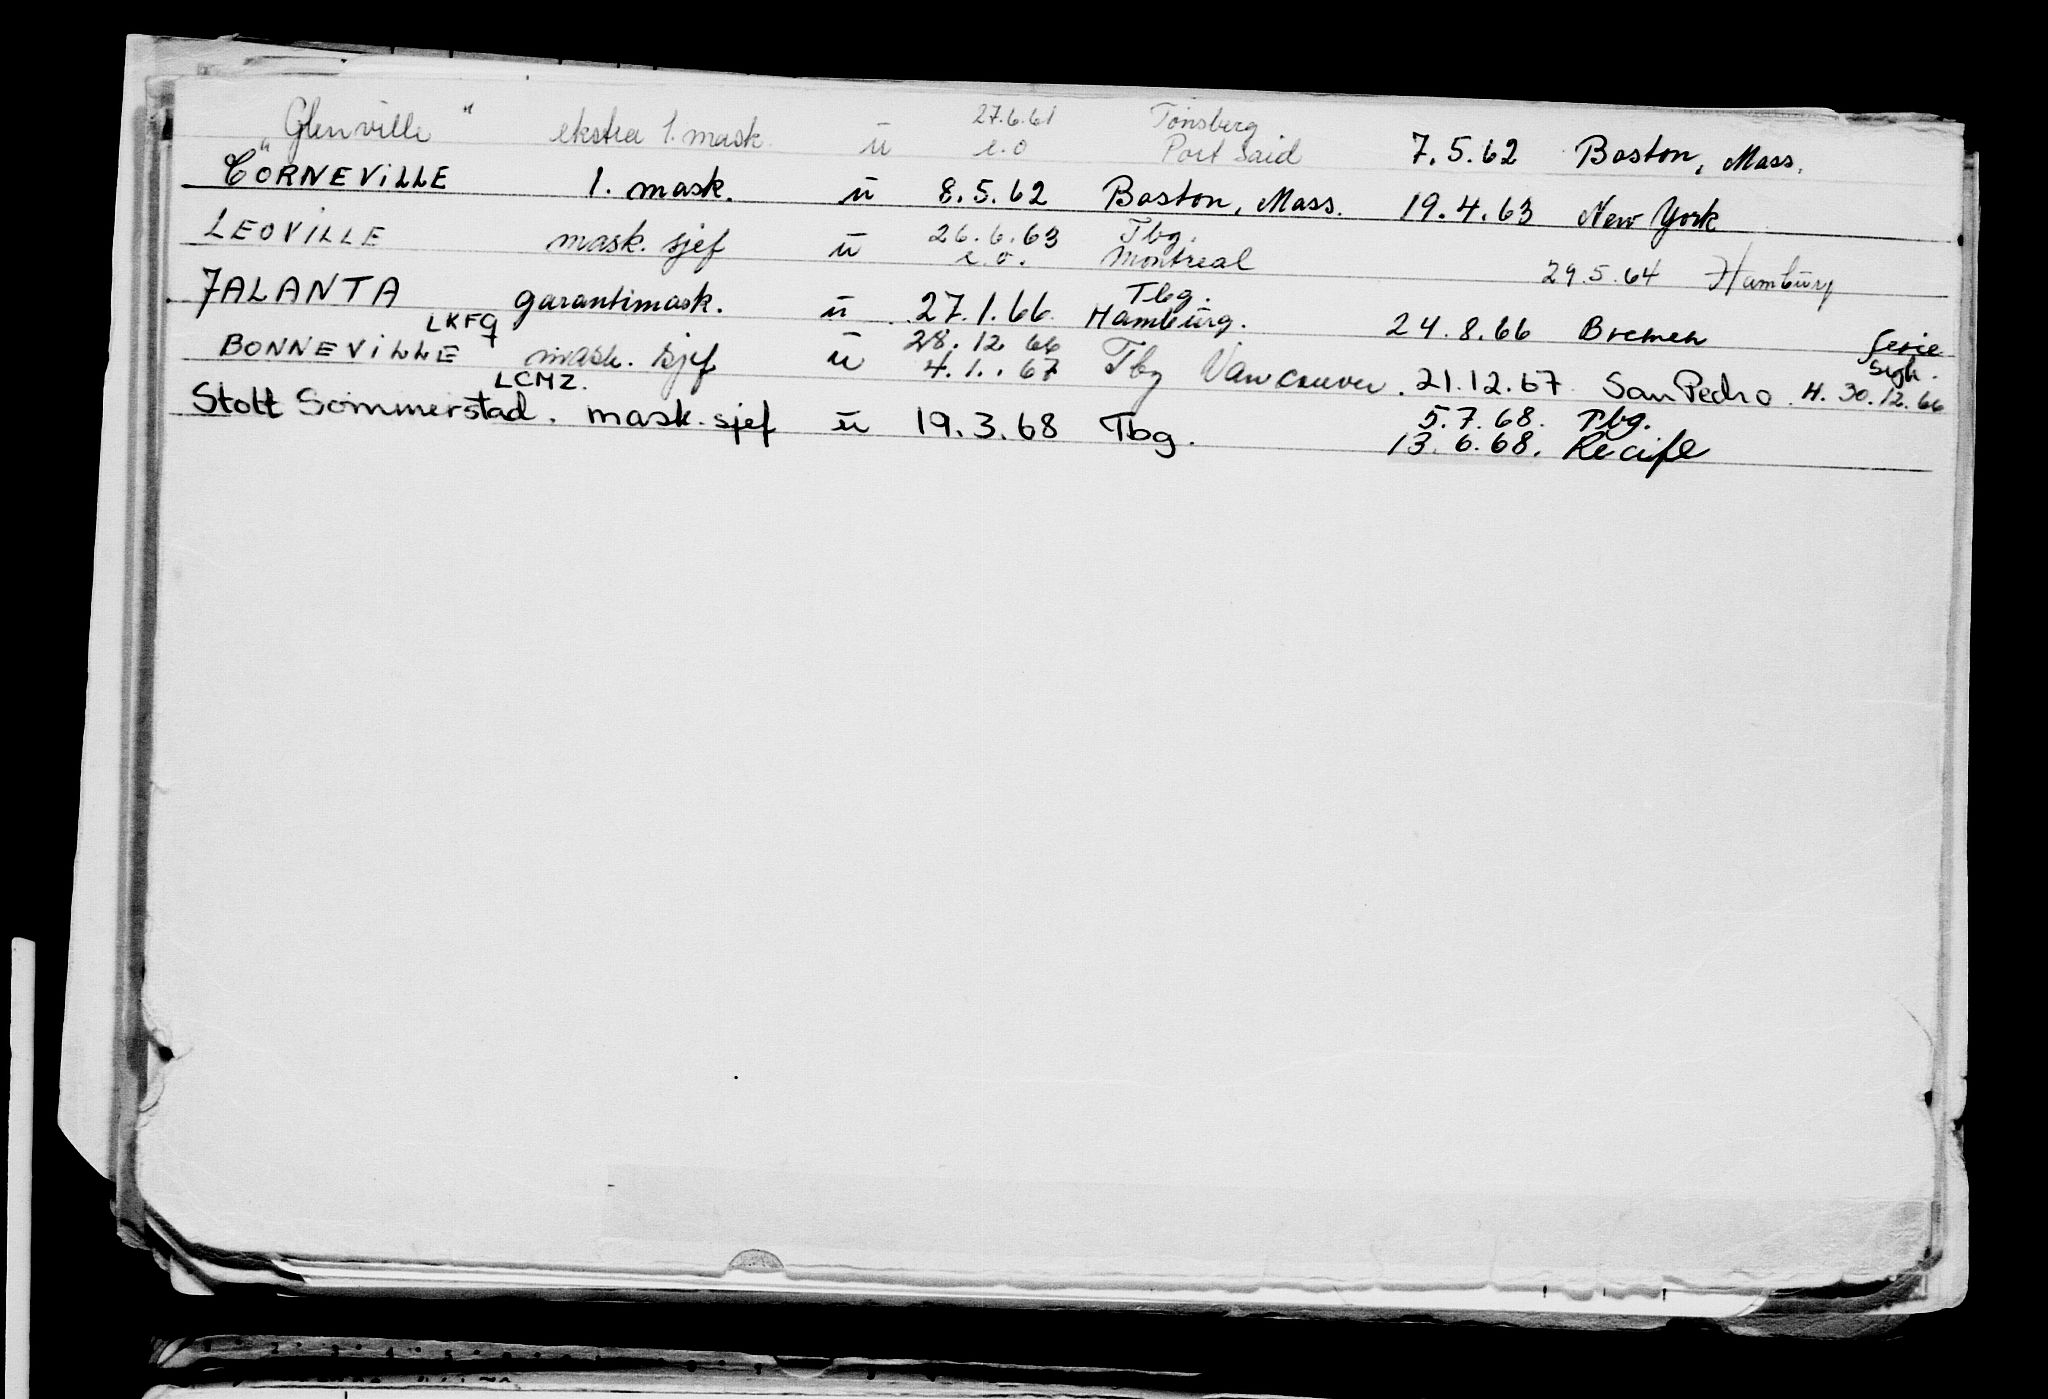 "Glenville" ekstra 1. mask. u 27.6.61 e.o Tönsberg Port Said 7.5.62 Boston, Mass.
"CORNEVILLE 1. mask. u 8.5.62 Boston, Mass. 19.4.63 New York
LEOVILLE mask. sjef u 26.6.63 e.o. Tbg. Montreal 29.5.64 Hamburg
JALANTA garantimask. u 27.1.66 Tbg. Hamburg. 24.8.66 Bremen
LKFG
BONNEVILLE mask. sjef u 28.12 66 4.1. 67 Tbg Vancouver. 21.12.67 San Pedro. H. 30.12.66
LCMZ.
Stolt Sommerstad. mask. sjef u 19.3.68 Tbg. 5.7.68. Tbg.
13.6.68. Recife